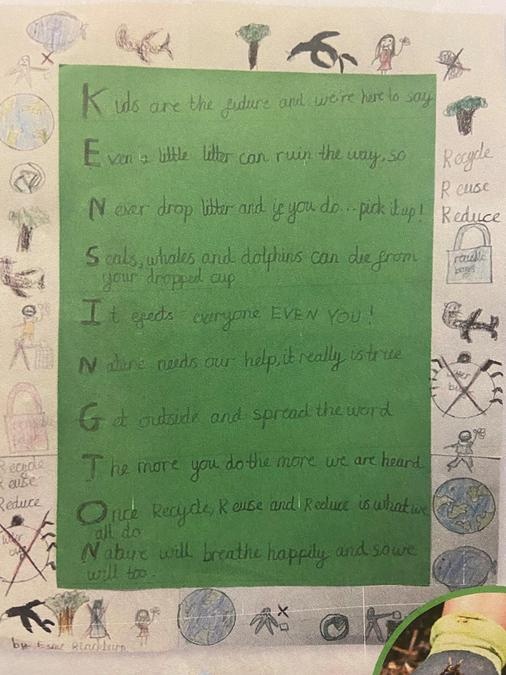 Kids are the future and we're here to say
Even a little litter can ruin the way, so
Never drop litter and if you do... pick it up!
Seals, whales and dolphins can die from
your dropped cup
It efects everyone EVEN YOU!
Nature needs our help, it really is true
Get outside and spread the word
The more you do the more we are heard
Once Recycle, Reuse and Reduce is what we
all do
Nature will breathe happily and so we
will too.
Recycle
Reuse
Reduce
Recycle
Reuse
Reduce
by Esme Blackburn